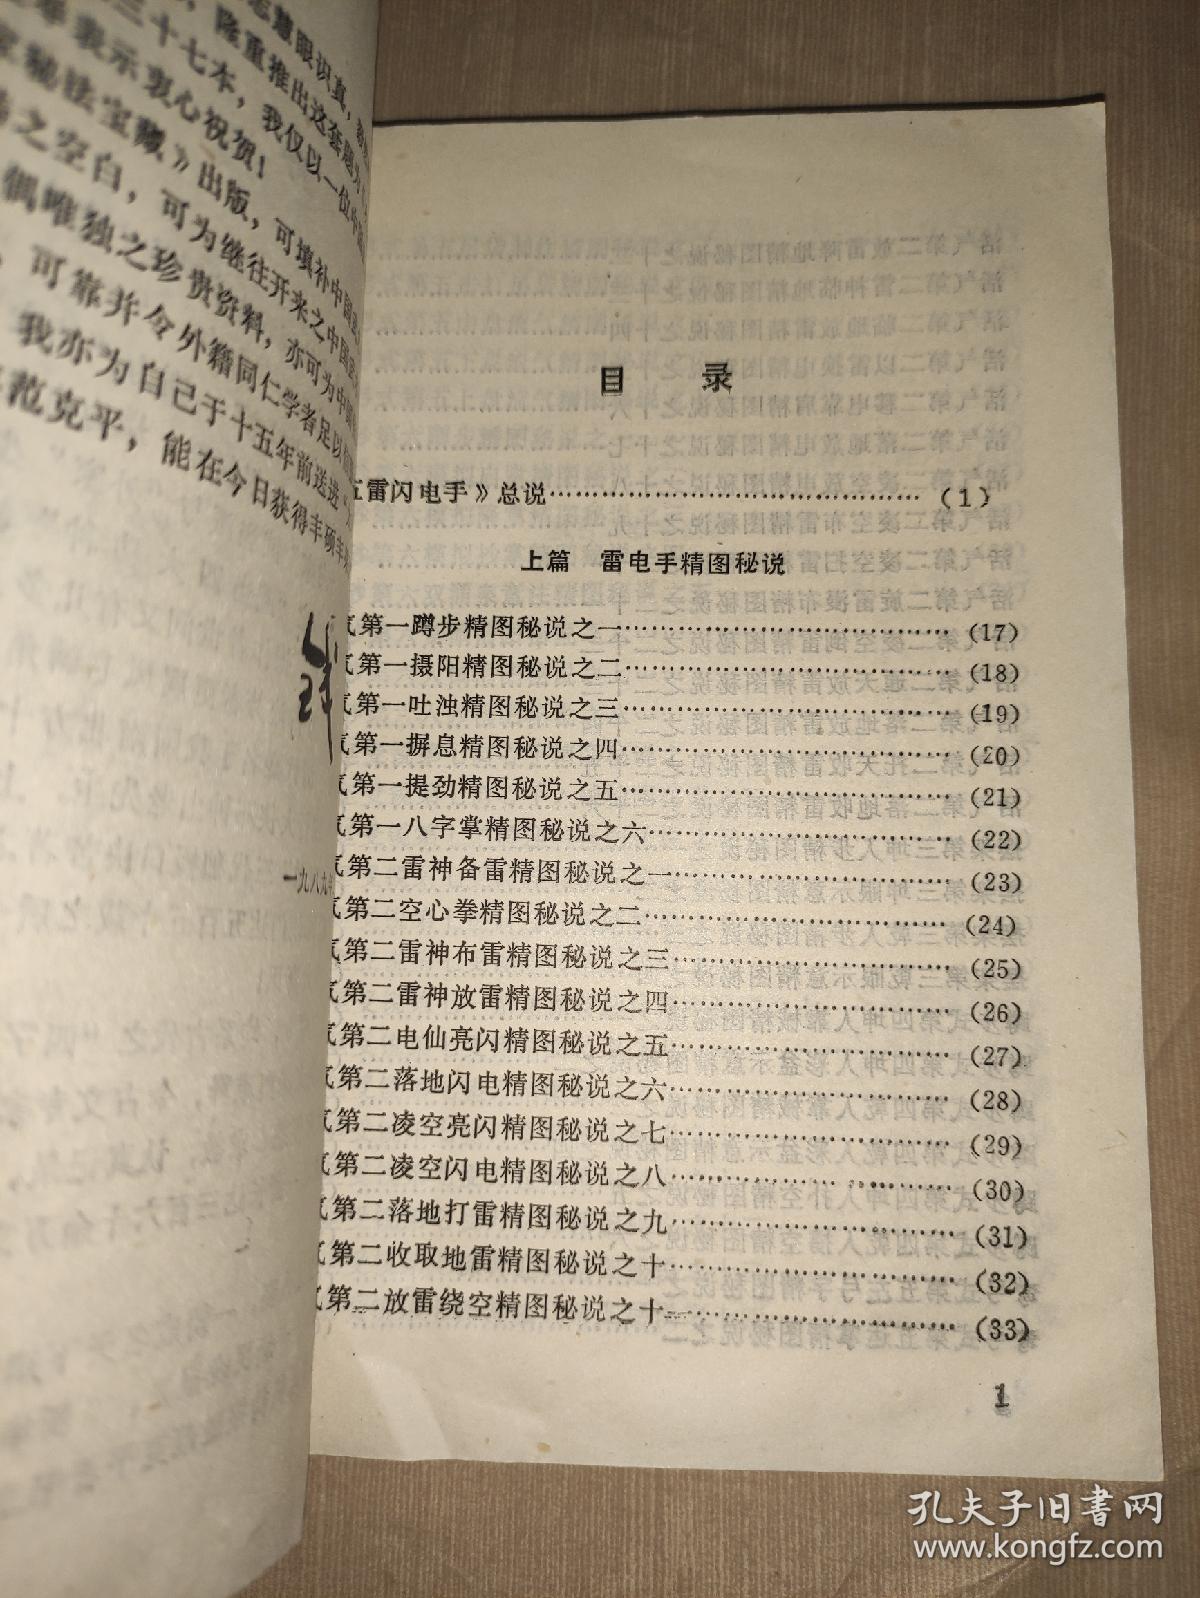 慧眼识真，
隆重推出这套题为
三十七本，我仅以一位中
表示衷心祝贺！
秘法宝藏》出版，可填补中国武
之空白，可为继往开来之中国武
偶唯独之珍贵资料，亦可为中
，可靠并令外籍同仁学者足以
我亦为自己于十五年前送进“
范克平，能在今日获得丰硕
一九八九年
目 录
五雷闪电手》总说……………………………………(1)
上篇 雷电手精图秘说
气第一蹲步精图秘说之一……………………………(17)
气第一摄阳精图秘说之二……………………………(18)
气第一吐浊精图秘说之三……………………………(19)
气第一摒息精图秘说之四……………………………(20)
气第一提劲精图秘说之五……………………………(21)
气第一八字掌精图秘说之六…………………………(22)
气第二雷神备雷精图秘说之一………………………(23)
气第二空心拳精图秘说之二…………………………(24)
气第二雷神布雷精图秘说之三………………………(25)
气第二雷神放雷精图秘说之四………………………(26)
气第二电仙亮闪精图秘说之五………………………(27)
气第二落地闪电精图秘说之六………………………(28)
气第二凌空亮闪精图秘说之七………………………(29)
气第二凌空闪电精图秘说之八………………………(30)
气第二落地打雷精图秘说之九………………………(31)
气第二收取地雷精图秘说之十………………………(32)
气第二放雷绕空精图秘说之十一……………………(33)
1
孔夫子旧书网
www.kongfz.com